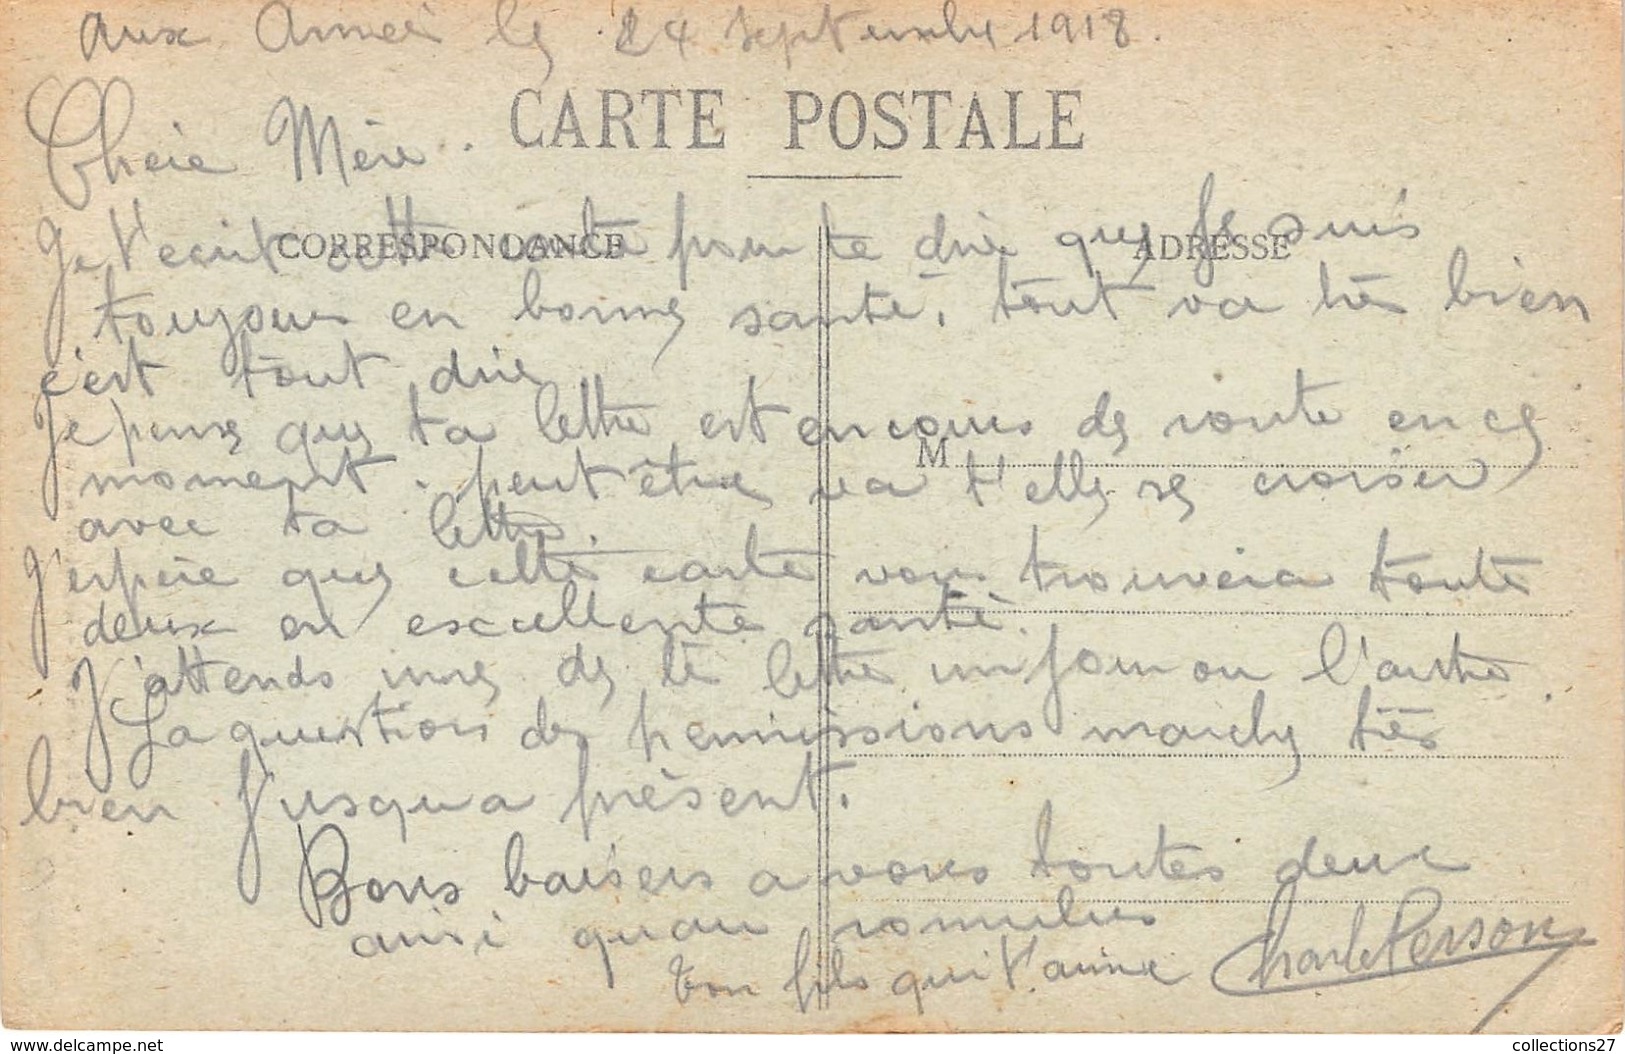 aux Armées le 24 septembre 1918.
CARTE POSTALE
Chère Mère.
CORRESPONDANCE
ADRESSE
Je t'ecrit cette carte pour te dire que Je suis
toujours en bonne santé, tout va très bien
c'est tout dire
Je pense que ta lettre est en cours de route en ce
M
moment. peut être va t'elle se croiser
avec ta lettre.
J'espère que cette carte vous trouvera toute
deux en excellente santé.
J'attends une de té lettre un Jour ou l'autre.
La question de permissions marche très
bien Jusqua présent.
Bons baisers a vous toutes deux
ainsi quau
Ton fils qui t'aime Charle Person
www.delcampe.net
collections27